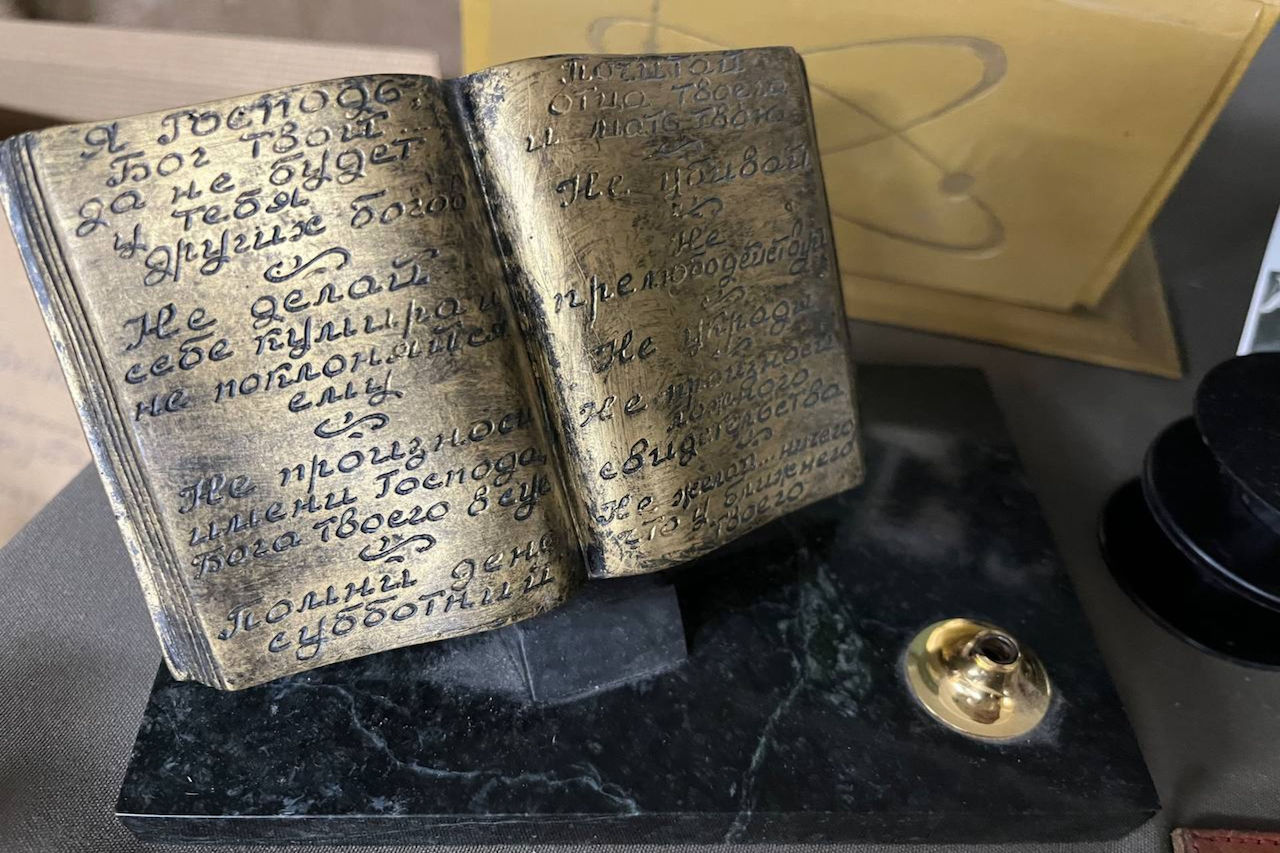 Я Господь
Бог твой
да не будет
у тебя
других богов
Не делай
себе кумира и
не поклоняйся
ему
Не произноси
имени Господа,
Бога твоего в суе
Помни день
субботний
Почитай
отца твоего
и мать твою
Не убивай
Не
прелюбодействуй
Не укради
Не произноси
ложного
свидетельства
Не желай... ничего
что у ближнего
твоего